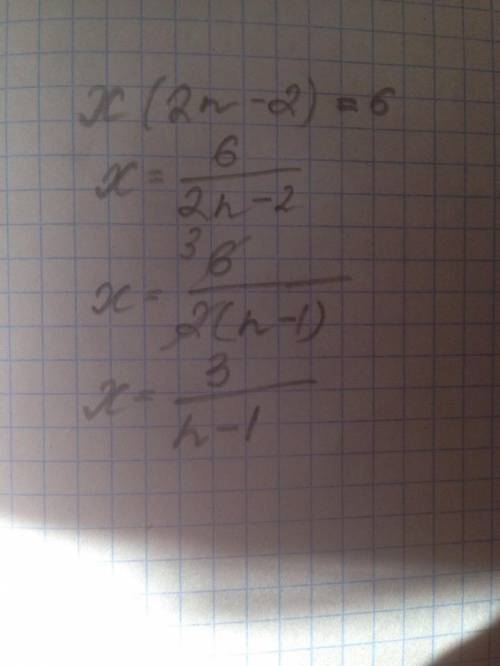 x(2n-2)=6
x=6/2n-2
x=³6/2(n-1)
x=3/n-1